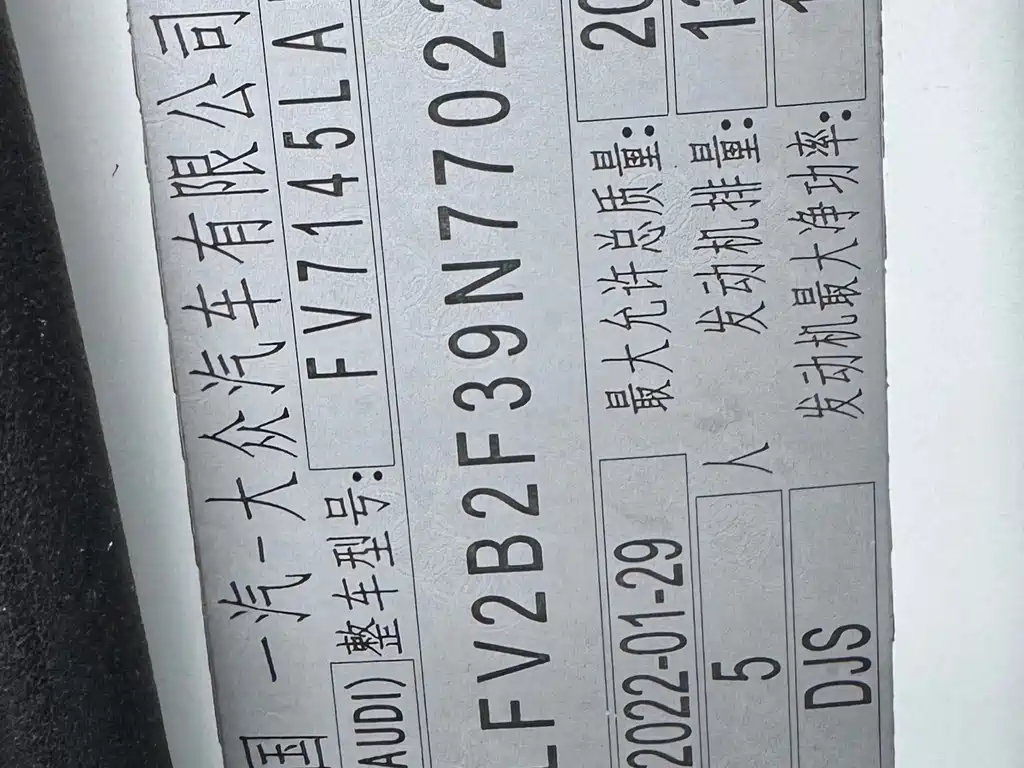 国 一汽-大众汽车有限公司
AUDI) 整车型号: FV7145LA
LFV2B2F39N77022
2022-01-29 最大允许总质量: 20
5 人 发动机排量: 13
DJS 发动机最大净功率: